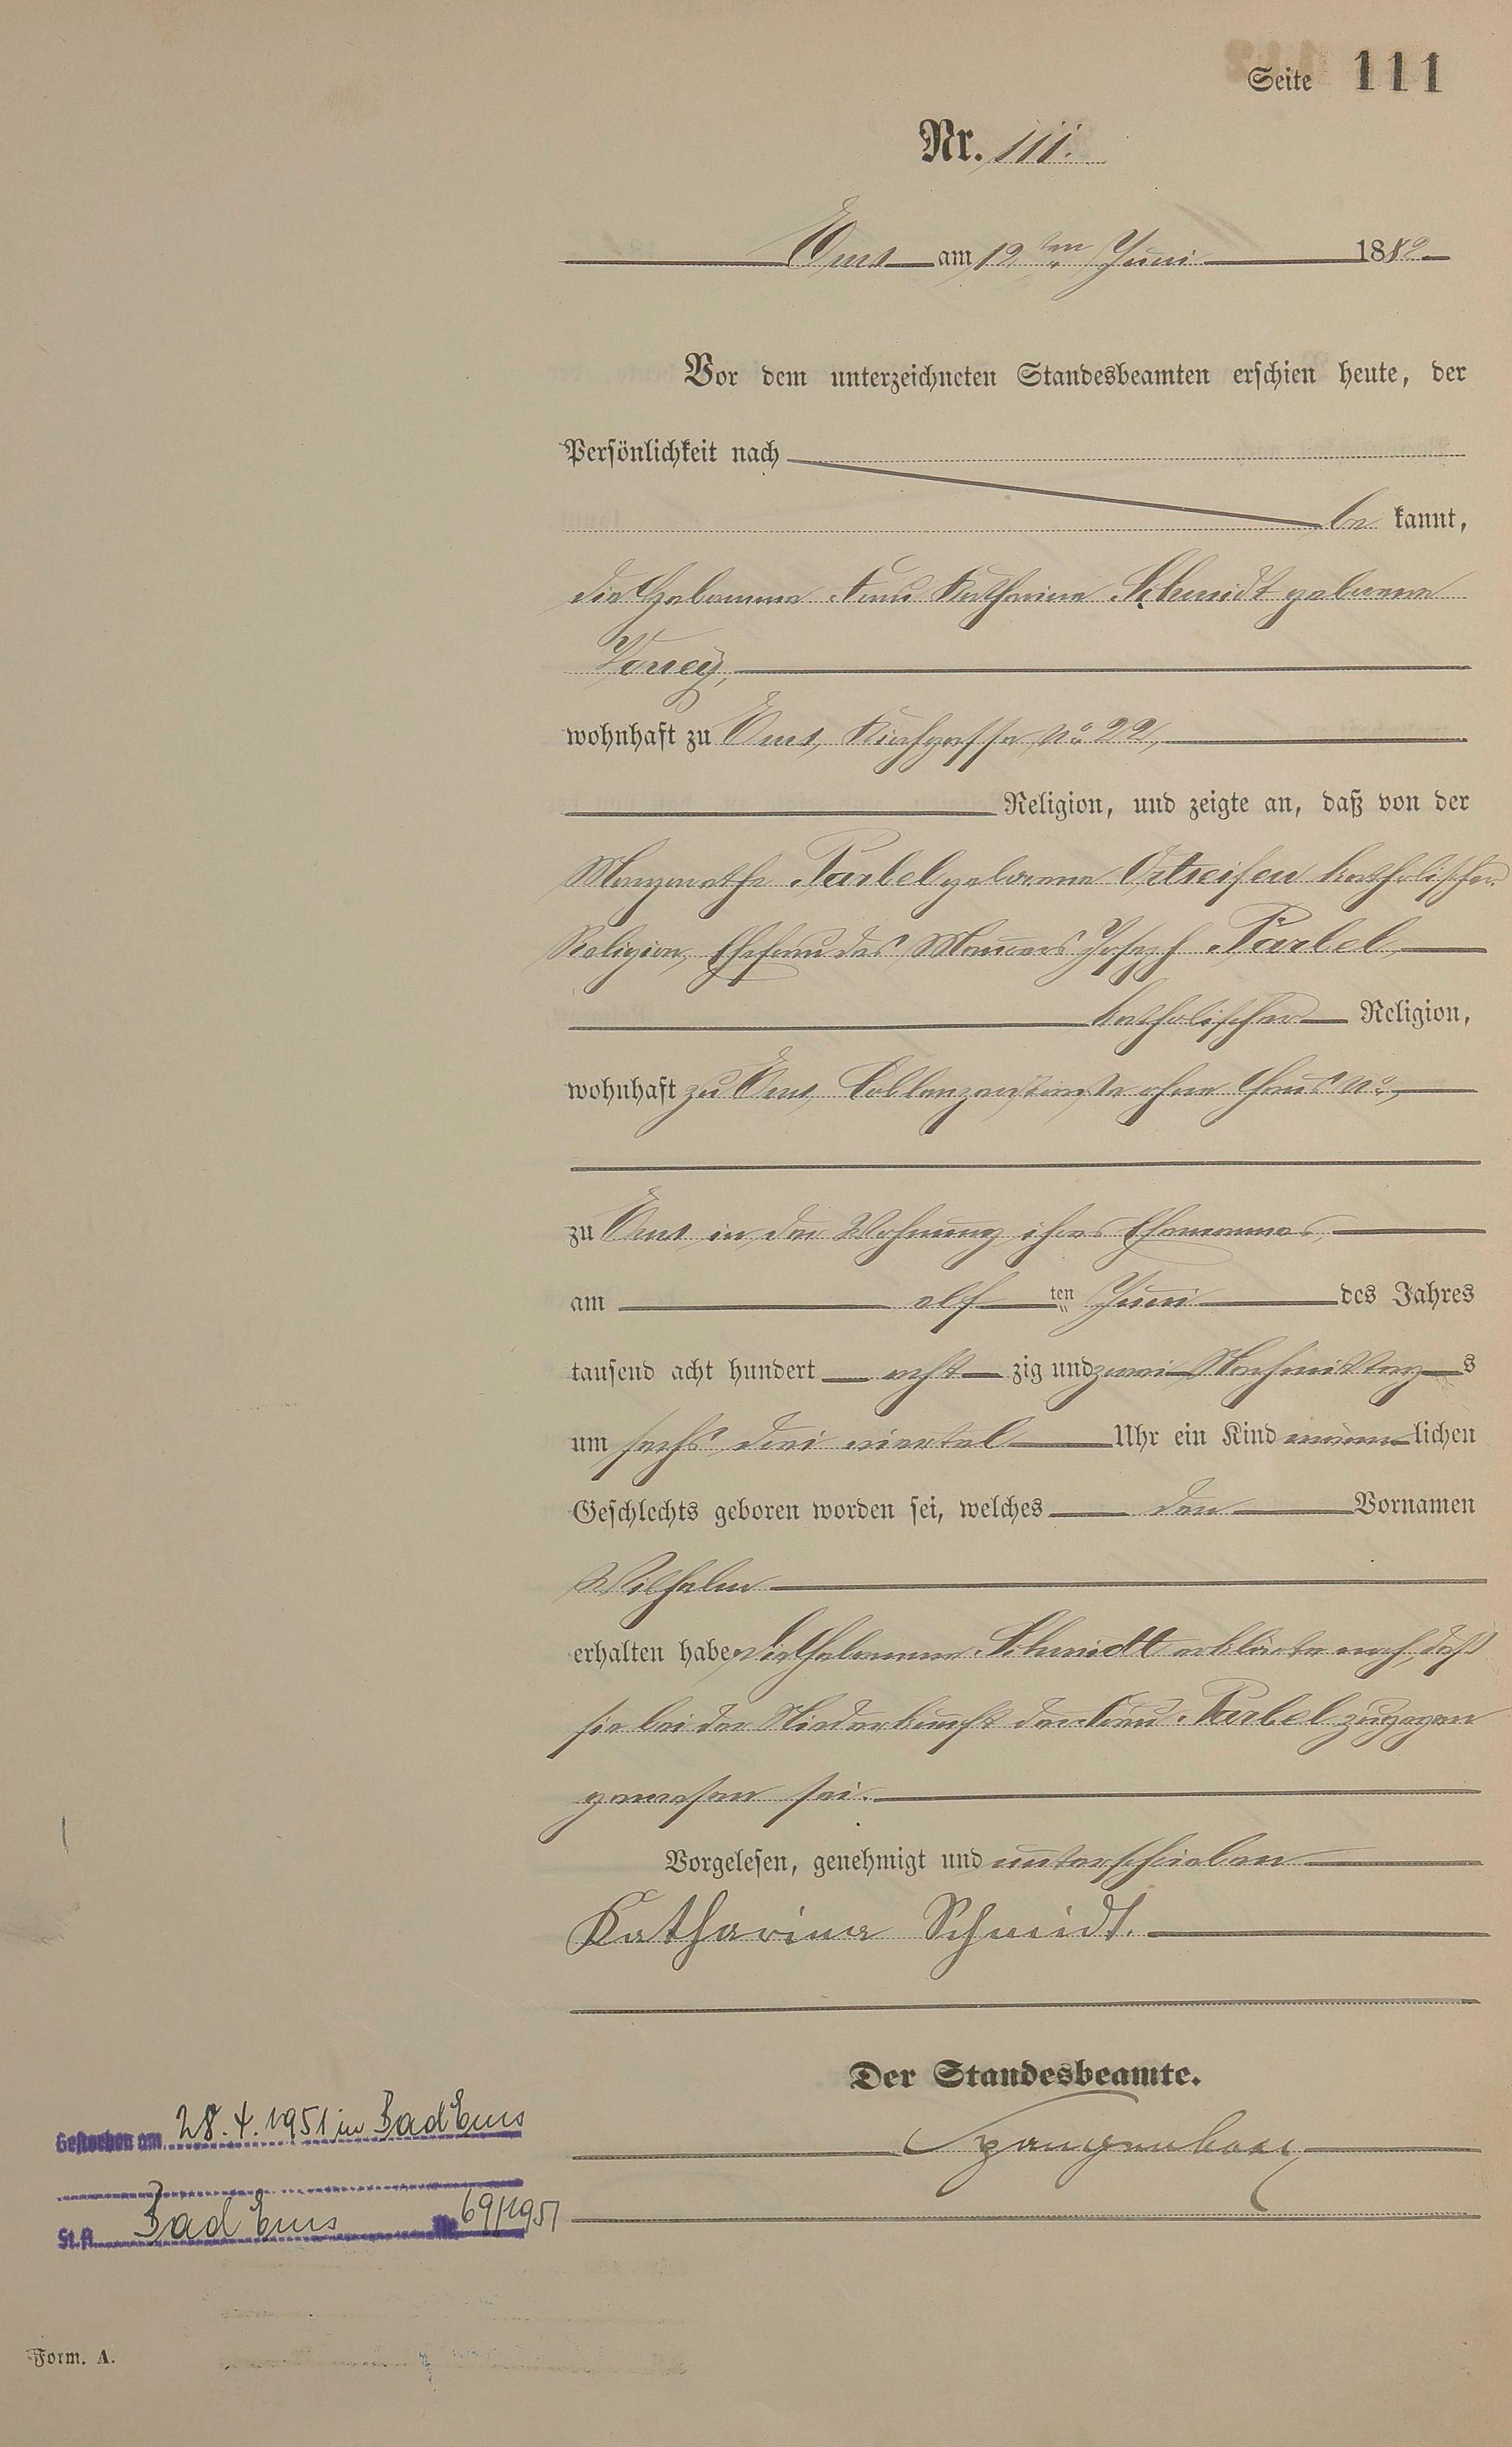 Seite 111
Nr. 111.
Ems am 12ten Juni 1882
Vor dem unterzeichneten Standesbeamten erschien heute, der
Persönlichkeit nach
be kannt,
die Hebamme Frau Katharina Schmidt geborene
wohnhaft zu Ems, Kirchgasse No. 22,
Religion, und zeigte an, daß von der
Margarethe Farbel geborene Ortseifen katholischer
Religion, Ehefrau des Maurers Joseph Farbel
katholischer Religion,
wohnhaft zu Ems, Coblenzerstraße ohne Haus No.,
zu Ems in der Wohnung ihres Ehemannes,
am elf ten Juni des Jahres
tausend acht hundert acht zig und zwei Nachmittag s
um sechs drei viertel Uhr ein Kind männ lichen
Geschlechts geboren worden sei, welches den Vornamen
Wilhelm
erhalten habe. Die Hebamme Schmidt erklärte noch, daß
sie bei der Niederkunft der Frau Farbel zugegen
gewesen sei.
Vorgelesen, genehmigt und unterschrieben
Katharina Schmidt.
Der Standesbeamte.
Spangenberg
Gestorben am 28.4.1951 in Bad Ems
St.A. Bad Ems Nr. 69/1951
Form. A.